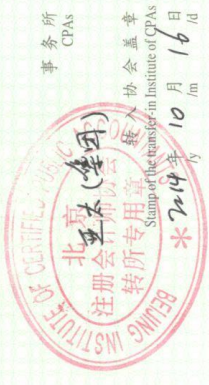 亚太(集团)
事务所
CPAs
转入协会盖章
Stamp of the transfer-in Institute of CPAs
2014年 10月 16日
/y /m /d
BEIJING INSTITUTE OF CERTIFIED PUBLIC ACCOUNTANTS
北京
注册会计师协会
转所专用章